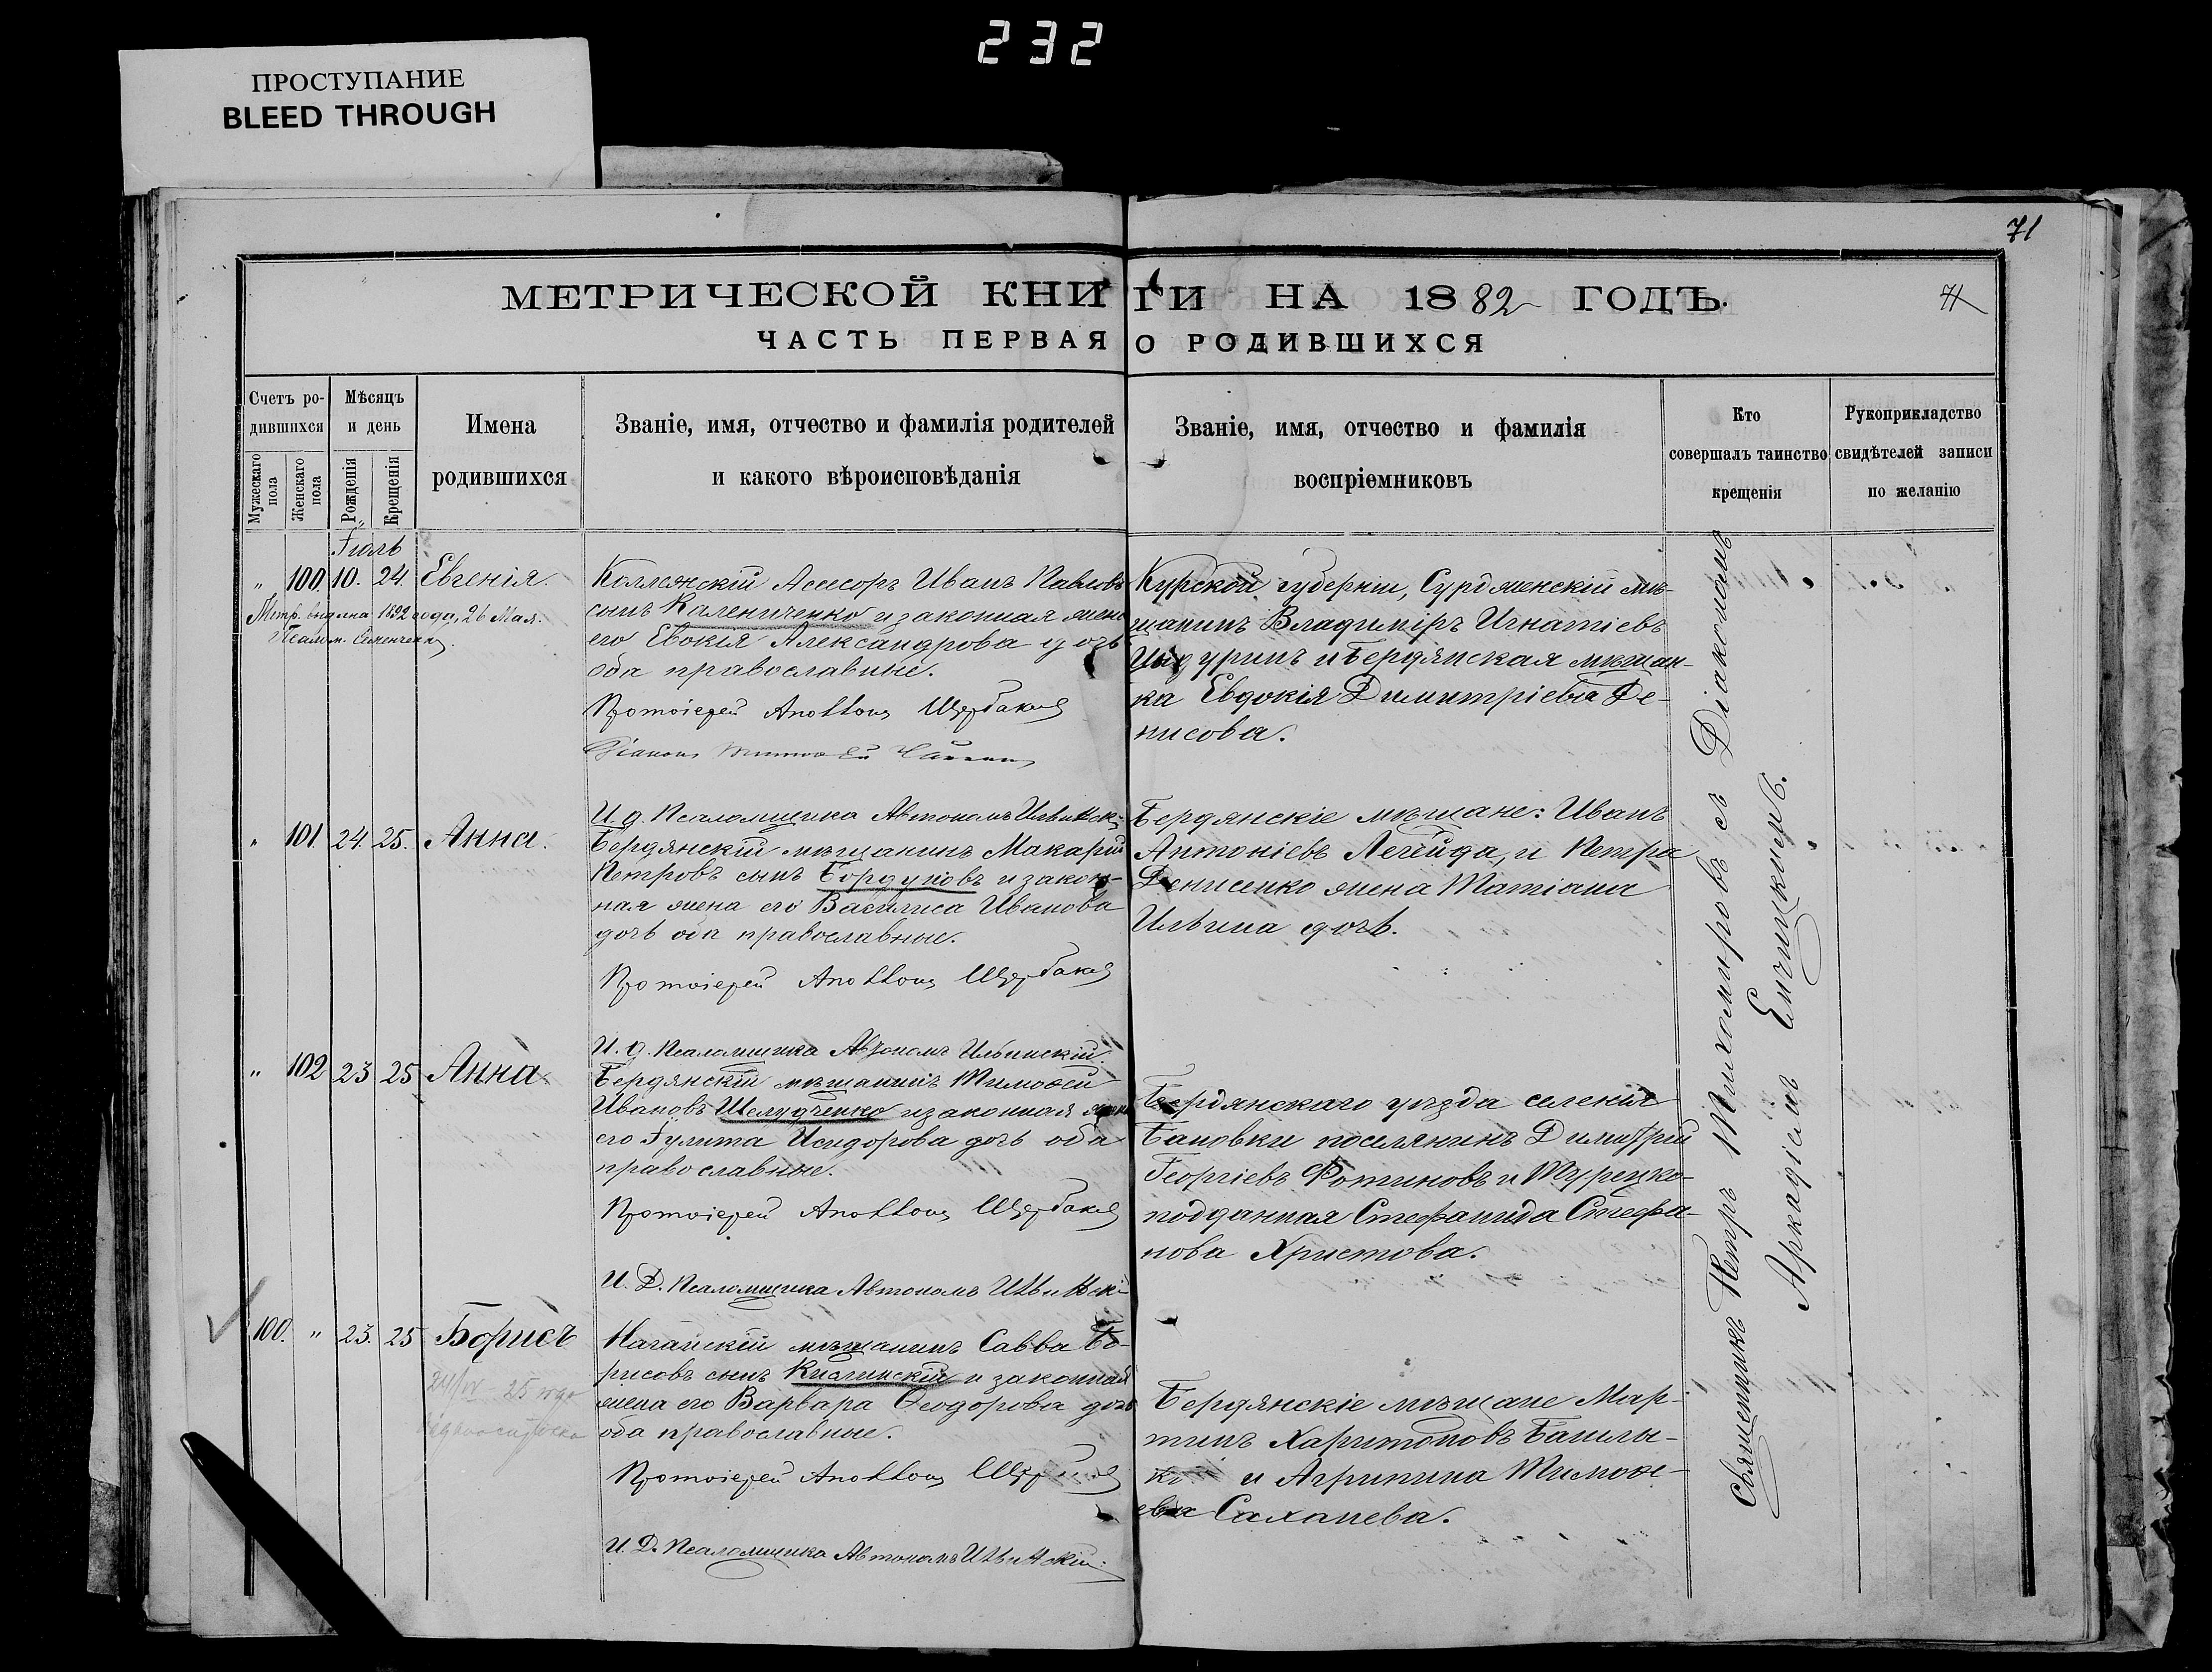 232
ПРОСТУПАНИЕ
BLEED THROUGH
71
МЕТРИЧЕСКОЙ КНИГИ НА 1882 ГОДЪ.
71
ЧАСТЬ ПЕРВАЯ О РОДИВШИХСЯ
Счетъ родившихся
Мужескаго пола
Женскаго пола
Мѣсяцъ и день
Рожденія
Крещенія
Имена
родившихся
Званіе, имя, отчество и фамилія родителей
и какого вѣроисповѣданія
Званіе, имя, отчество и фамилія
воспріемниковъ
Кто
совершалъ таинство
крещенія
Рукоприкладство
свидѣтелей записи
по желанію
Іюль
" 100. 10. 24. Евгенія.
Метр. выдана 1892 года, 26 Мая.
Псалом.
Коллежскій Асесоръ Иванъ Павловъ
сынъ Калениченко и законная жена
его Евокія Александрова дочь
оба православные.
Протоіерей Аполлонъ Щербаковъ
Діаконъ
Курской губерніи, мѣ-
щанинъ Владиміръ Игнатіевъ
и Бердянская мѣщан-
ка Евдокія Димитріева Де-
нисова.
" 101. 24. 25. Анна.
И. д. Псаломщика Автономъ Ильинскій
Бердянскій мѣщанинъ Макарій
Петровъ сынъ Бордуковъ и закон-
ная жена его Василиса Иванова
дочь оба православные.
Протоіерей Аполлонъ Щербаковъ
Бердянскіе мѣщане: Иванъ
Антоніевъ и Петра
Денисенко жена Татіана
Ильина дочь.
" 102 23 25 Анна.
И. д. Псаломщика Автономъ Ильинскій.
Бердянскій мѣщанинъ Тимоѳей
Ивановъ Шелудченко и законная жена
его Іулита Исидорова дочь оба
православные.
Протоіерей Аполлонъ Щербаковъ
И. Д. Псаломщика Автономъ Ильинскій
Бердянскаго уѣзда селенія
Бановки поселянинъ Димитрій
Георгіевъ Фотиновъ и Турецко-
подданная Стефанида Стефа-
нова Христова.
100. " 23. 25 Борисъ
Нагайскій мѣщанинъ Савва Бо-
рисовъ сынъ и законная
жена его Варвара Ѳеодорова дочь
оба православные.
Протоіерей Аполлонъ
И. Д. Псаломщика Автономъ Ильинскій.
Бердянскіе мѣщане Мар-
тинъ Харитоновъ
и Агрипина Тимоѳе-
ева Саханева.
Священникъ Петръ Тихомировъ съ Діакономъ
Аркадіемъ Енчицкимъ.